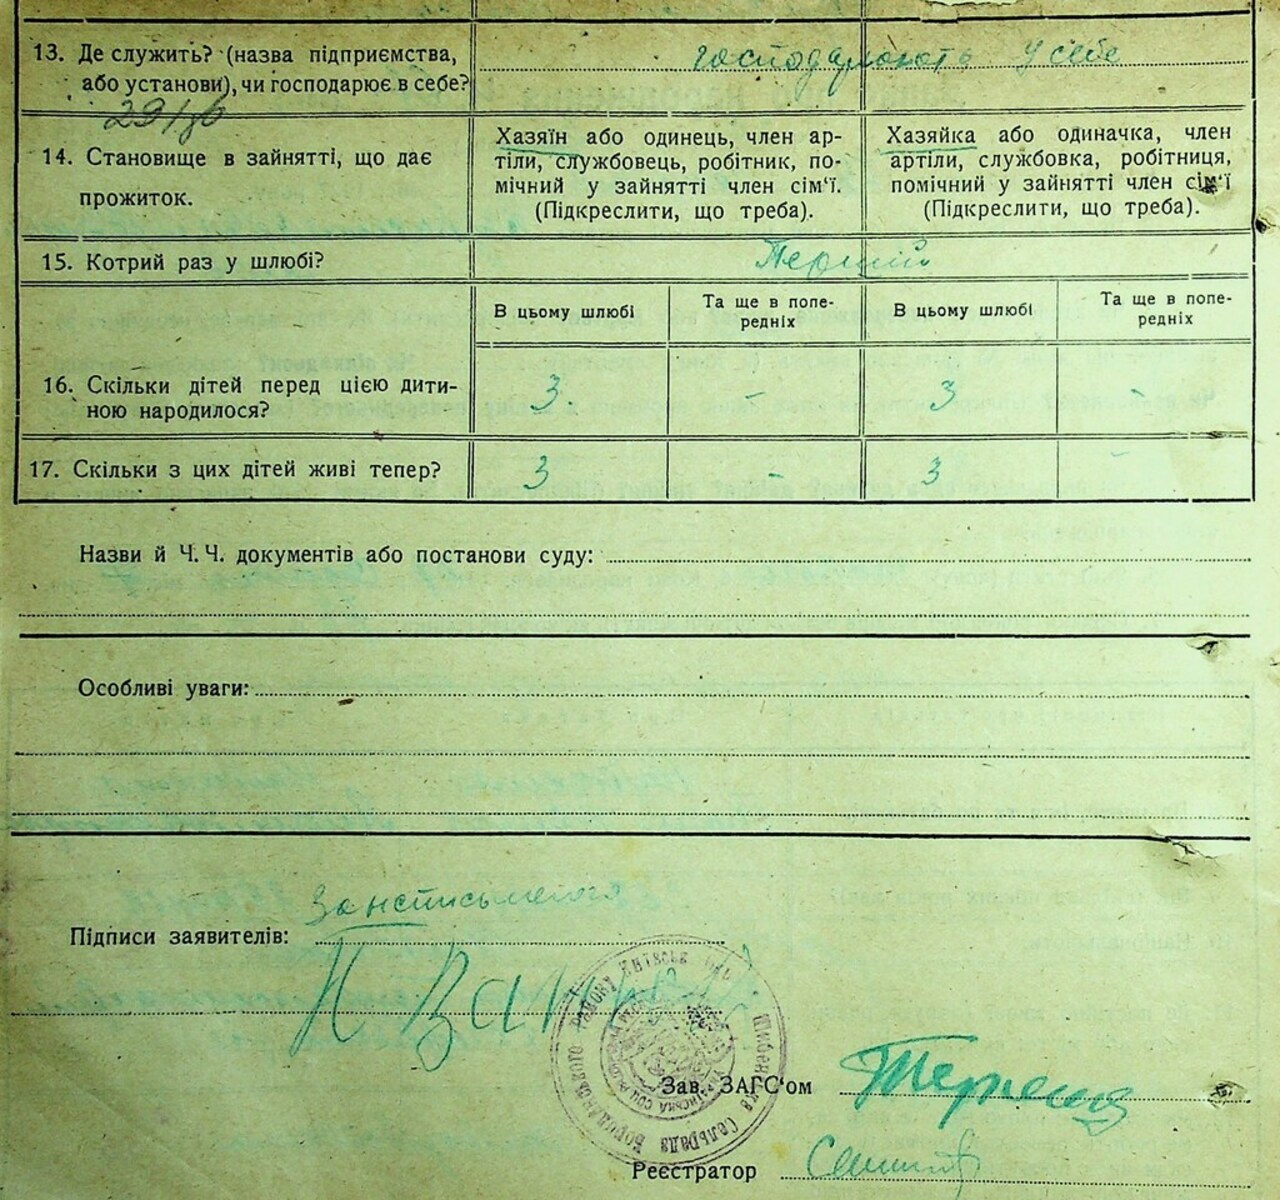 13. Де служить? (назва підприємства,
або установи), чи господарює в себе?
господарюють у себе
29/дб
14. Становище в зайнятті, що дає
прожиток.
Хазяїн або одинець, член ар-
тіли, службовець, робітник, по-
мічний у зайнятті член сім‘ї.
(Підкреслити, що треба).
Хазяйка або одиначка, член
артіли, службовка, робітниця,
помічний у зайнятті член сім‘ї
(Підкреслити, що треба).
15. Котрий раз у шлюбі?
Перший
В цьому шлюбі
Та ще в попе-
редніх
В цьому шлюбі
Та ще в попе-
редніх
16. Скільки дітей перед цією дити-
ною народилося?
3. - 3 -
17. Скільки з цих дітей живі тепер?
3 - 3 -
Назви й Ч. Ч. документів або постанови суду:
Особливі уваги:
За неписьменого
Підписи заявителів:
Шибенська Сельрада Бородянського Району Київськ
Зав. ЗАГС‘ом
Реєстратор